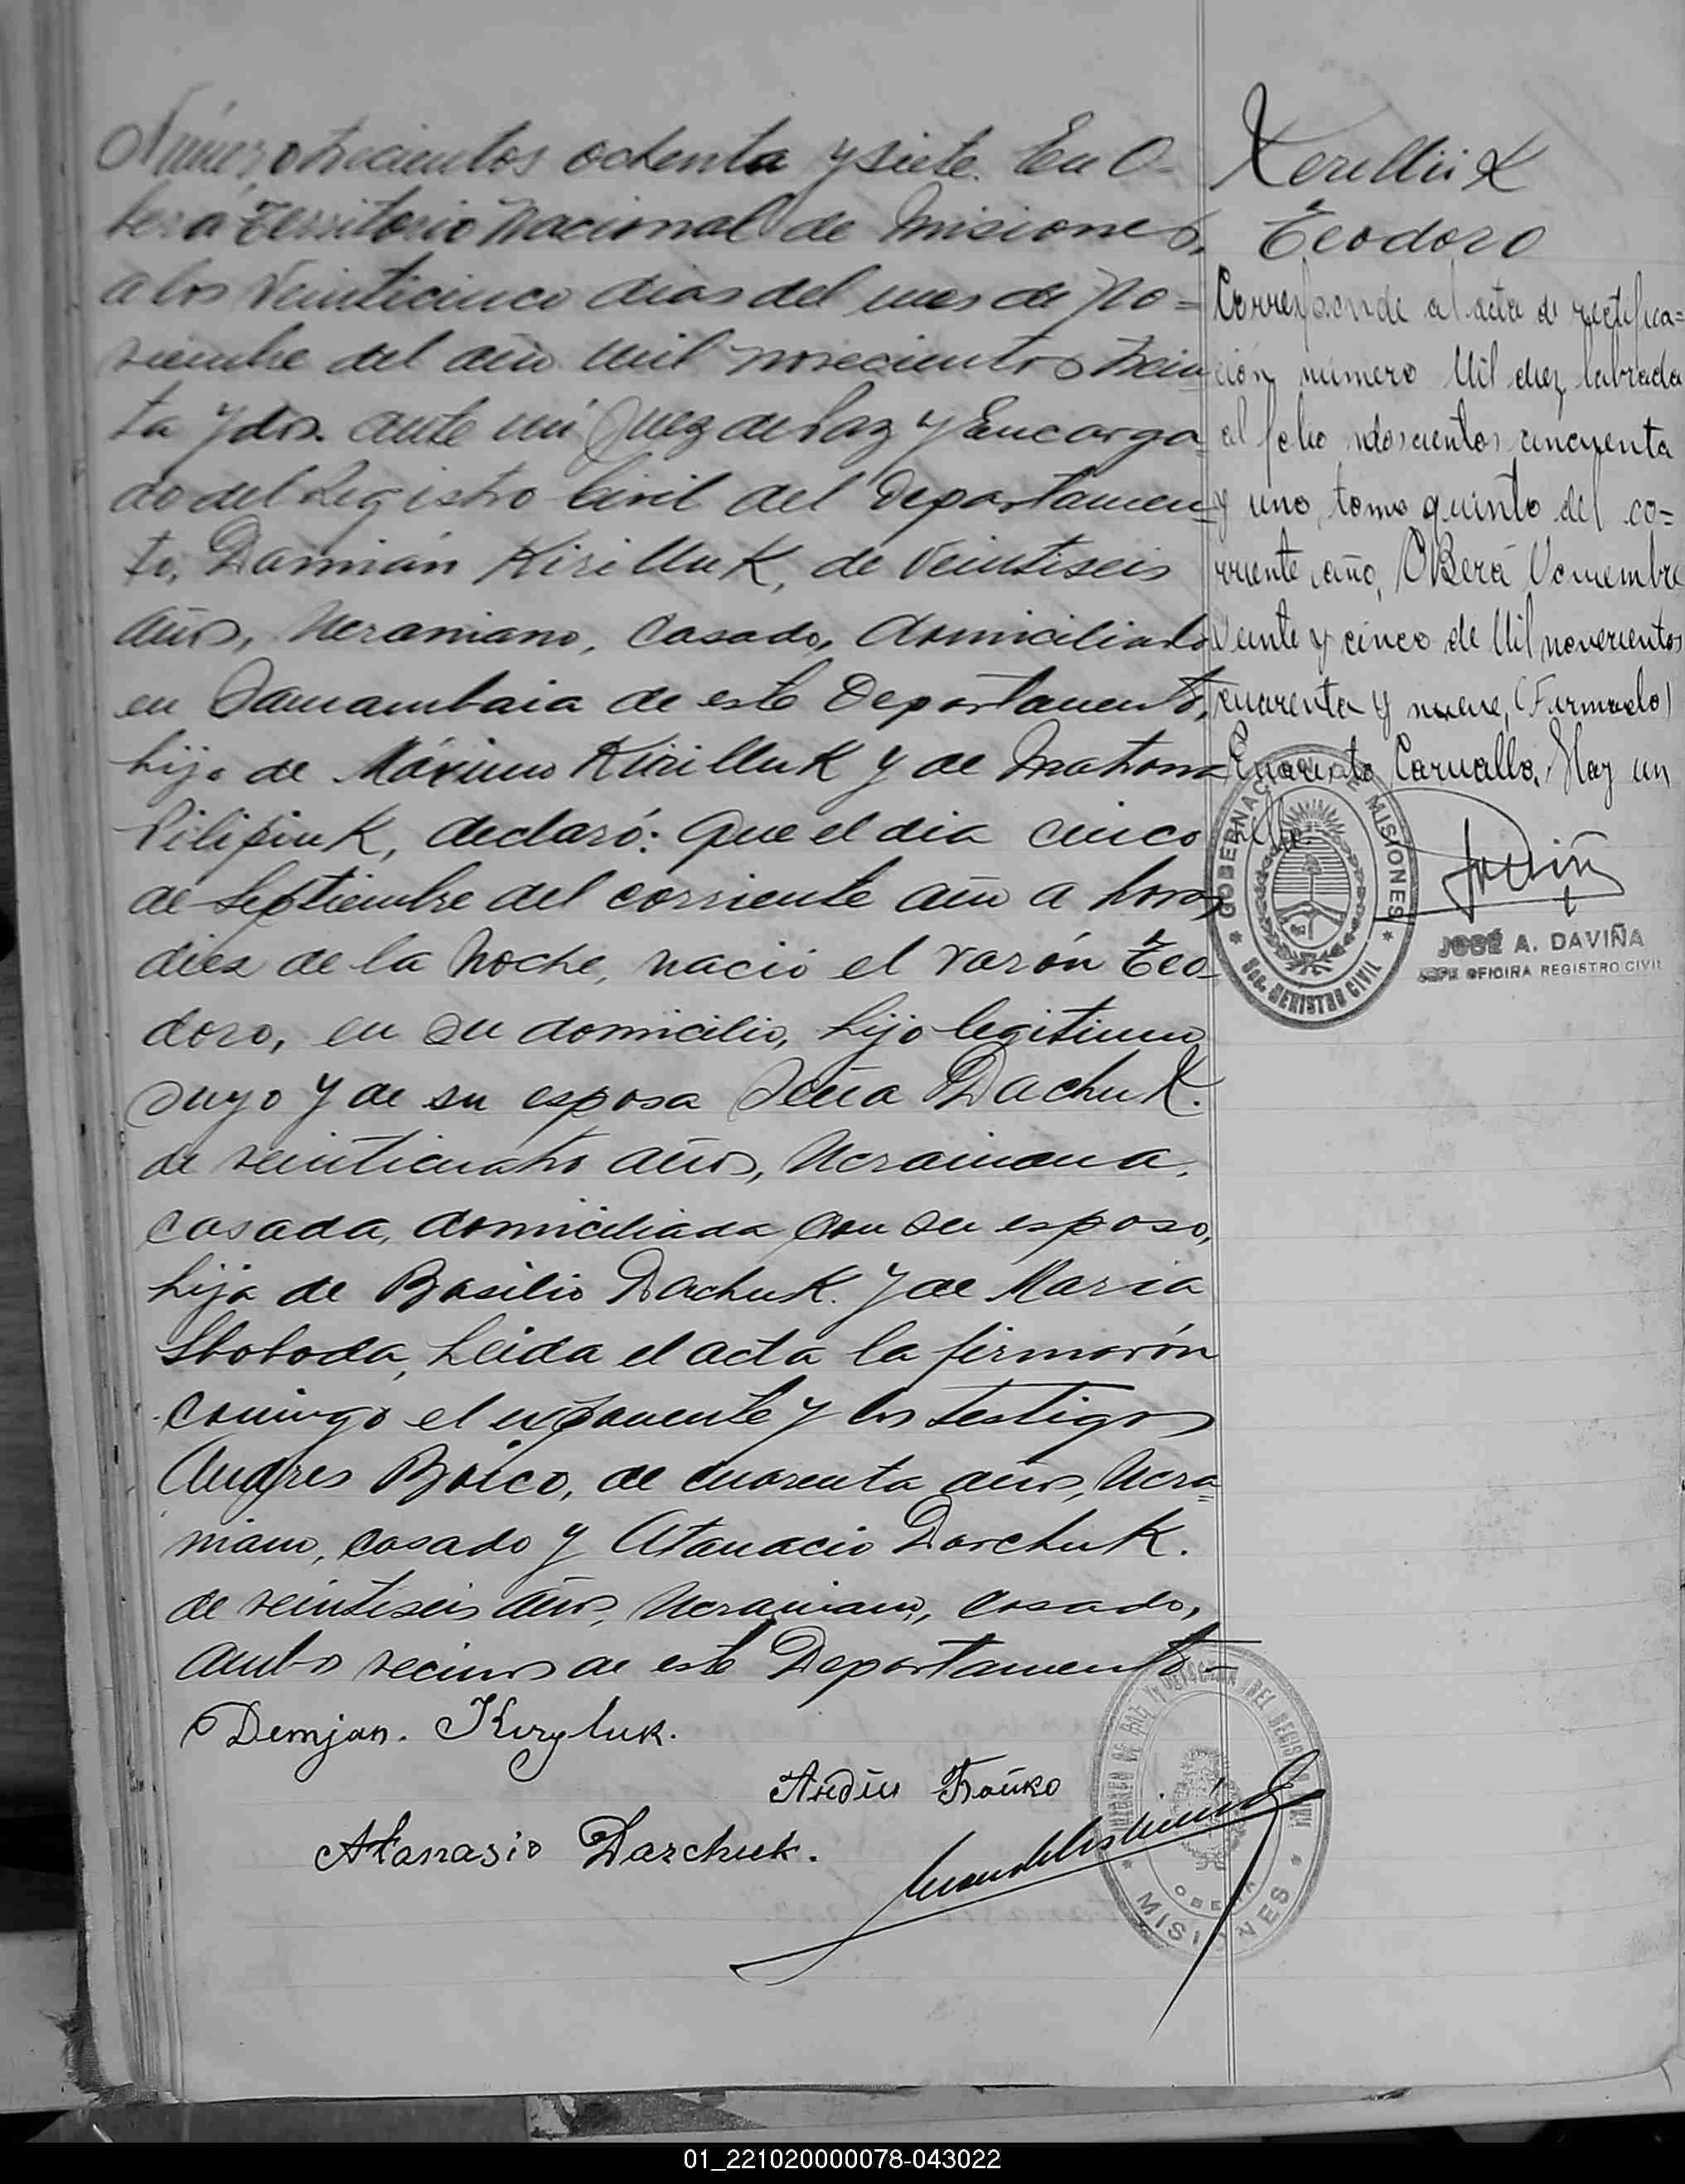 Número trecientos ochenta y siete. En O-
bera Territorio Nacional de Misiones,
a los veinticinco dias del mes de No=
viembre del año mil novecientos trein
ta y dos. ante mi Juez de Paz y Encarga=
do del Registro Civil del Departamen=
to, Damián Kirilluk, de veintiseis
años, Ucraniano, casado, domiciliado
en Samambaia de este Departamento,
hijo de Máximo Kirilluk y de Matrona
Pilipiuk, declaró: Que el dia cinco
de Septiembre del corriente año a horas
diez de la noche, nació el varón Teo-
doro, en su domicilio, hijo legitimo
suyo y de su esposa Dachuk.
de veinticuatro años, Ucrainana,
casada, domiciliada con su esposo,
hija de Basilio Dachuk. y de Maria
Sboboda, Leida el acta la firmarón
comigo el exponente y los testigos
Andres Boico, de cuarenta años, Ucra=
niano, casado y Atanacio Darchuk.
de veintiseis años, Ucraniano, casado,
ambos vecinos de este Departamento-
Demjan. Kuryluk.
Atanasio Darchuk.
Teodoro
Corresponde al acta de rectifica=
ción número Mil diez labrada
al folio doscientos cincuenta
y uno, tomo quinto del co=
rriente año, OBerá Noviembre
veinte y cinco de Mil novecientos
cuarenta y nueve, (Firmado)
Evaristo Carvallo. Hay un
sello.
GOBERNACION DE MISIONES
REGISTRO CIVIL
JOSÉ A. DAVIÑA
JEFE OFICINA REGISTRO CIVIL
JUZGADO DE PAZ Y DEL REGISTRO CIVIL
OBERA
MISIONES
01_221020000078-043022